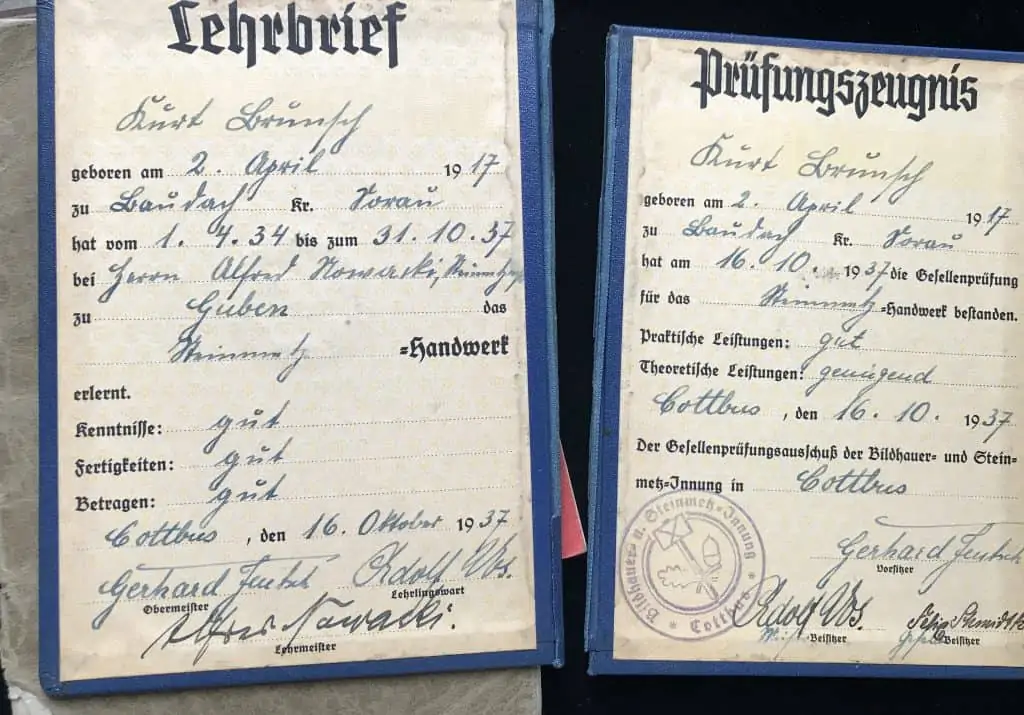 Lehrbrief
Kurt Brunsch
geboren am 2. April 1917
zu Baudach Kr. Sorau
hat vom 1. 4. 34 bis zum 31. 10. 37
bei Herrn Alfred Nowacki,
zu Guben das
Steinmetz =Handwerk
erlernt.
Kenntnisse: gut
Fertigkeiten: gut
Betragen: gut
Cottbus, den 16. Oktober 1937
Gerhard Adolf
Obermeister Lehrlingswart
Alfred Nowacki.
Lehrmeister
Prüfungszeugnis
Kurt Brunsch
geboren am 2. April 1917
zu Baudach Kr. Sorau
hat am 16. 10. 1937 die Gesellenprüfung
für das Steinmetz =Handwerk bestanden.
Praktische Leistungen: gut
Theoretische Leistungen: genügend
Cottbus, den 16. 10. 1937
Der Gesellenprüfungsausschuß der Bildhauer- und Stein-
metz-Innung in Cottbus
Bildhauer- u. Steinmetz-Innung
* Cottbus *
Gerhard
Vorsitzer
Adolf
Beisitzer Beisitzer